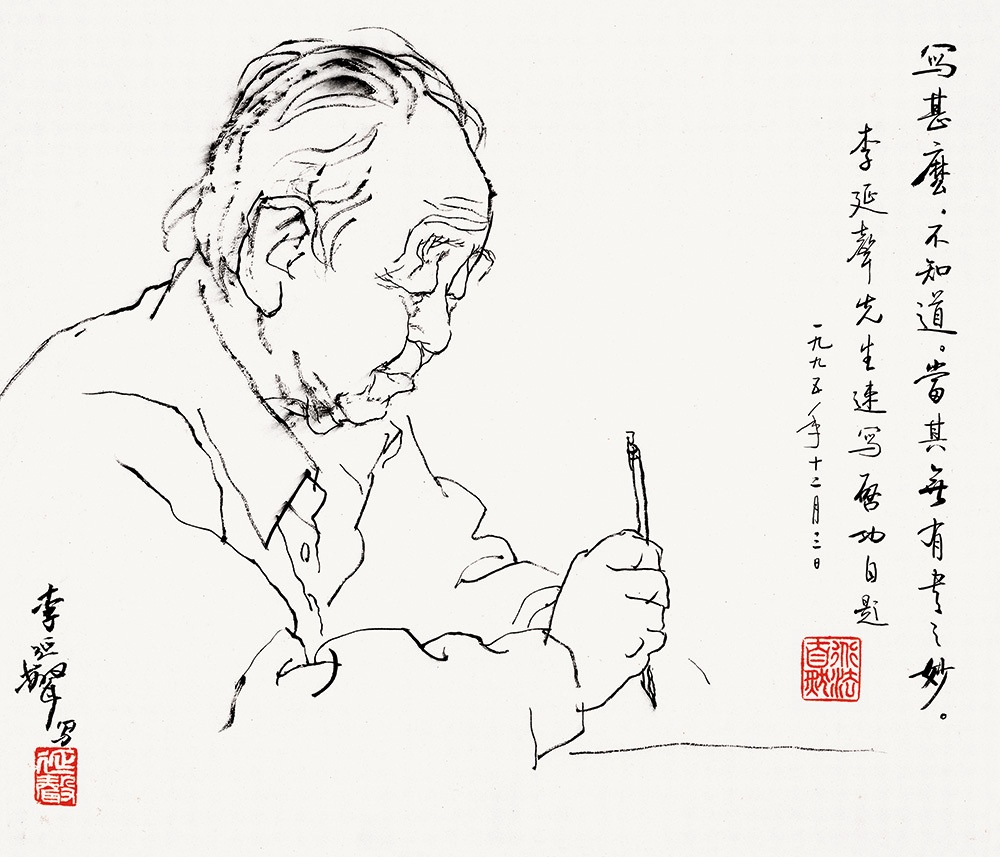 寫甚麼，不知道。當其無，有書之妙。
李延聲先生速寫啓功自題
一九九五年十二月三日
李延聲写
延聲